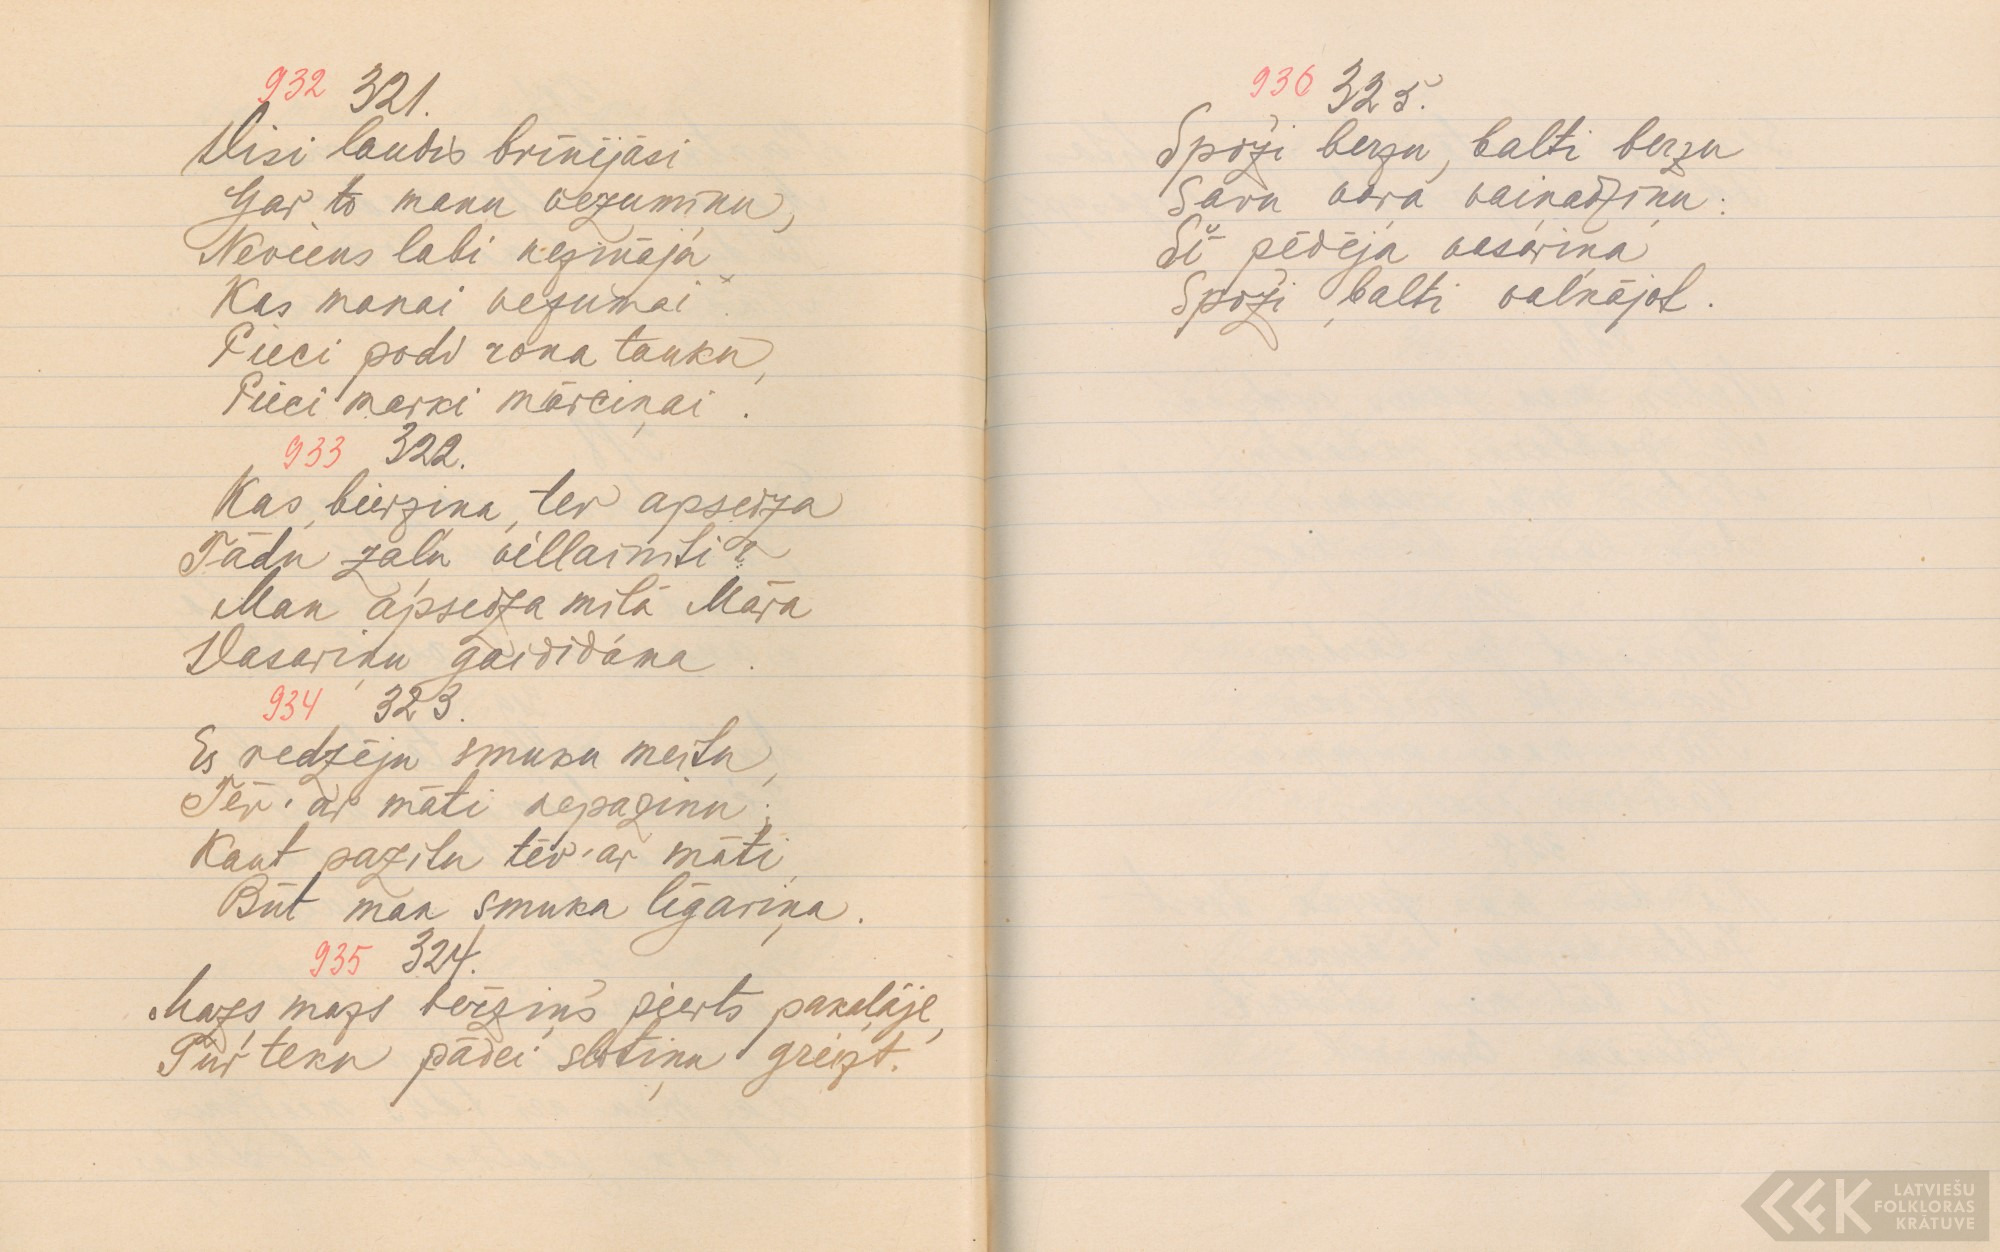 932 321.
Visi laudis brīnījāsi
Gar to manu vezumiņu,
Neviens labi nezināja
Kas manai vezumai:
Pieci podi roņa tauku,
Pieci marki mārciņai.
933 322.
Kas, bērziņa, tev apsedza
Tādu zaļu villainīti?
Man apsedza mīlā Māra
Vasariņu gaididama.
934 323.
Es redzēju smuku meitu,
Tēv' ar māti nepazinu:
Kaut pazītu tēv' ar māti,
Būt man smuka līgaviņa.
935 324.
Mazs, mazs bērziņš pierts pakaļāje,
Tur teku pādei slotiņu griezt.
936 325.
Spoži beržu, balti beržu
Savu vara vainadziņu:
Šī pēdēja vasariņa
Spoži, balti valkājot.
LATVIEŠU
FOLKLORAS
KRĀTUVE